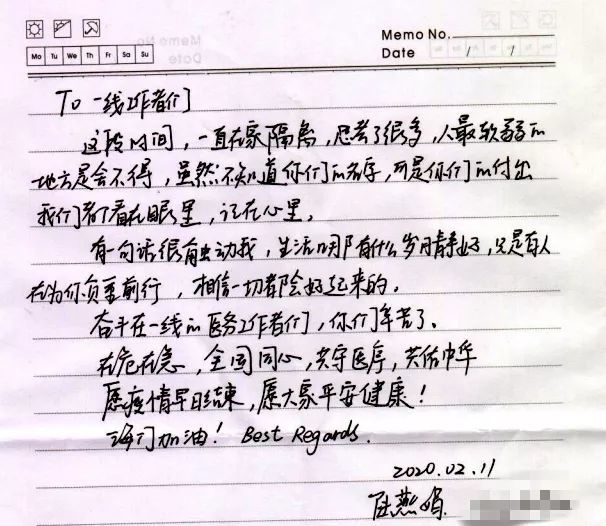 Memo No.
Mo Tu We Th Fr Sa Su
Date / /
To 一线工作者们
这段时间，一直在家隔离，思考了很多，人最软弱的
地方是舍不得，虽然不知道你们的名字，可是你们的付出
我们都看在眼里，记在心里。
有一句话很触动我，生活哪有什么岁月静好，只是有人
在为你负重前行，相信一切都会好起来的。
奋斗在一线的医务工作者们，你们辛苦了。
在危在急，全国同心，共守医序，共佑中华
愿疫情早日结束，愿大家平安健康！
海门加油！Best Regards.
2020.02.11
陆燕娟